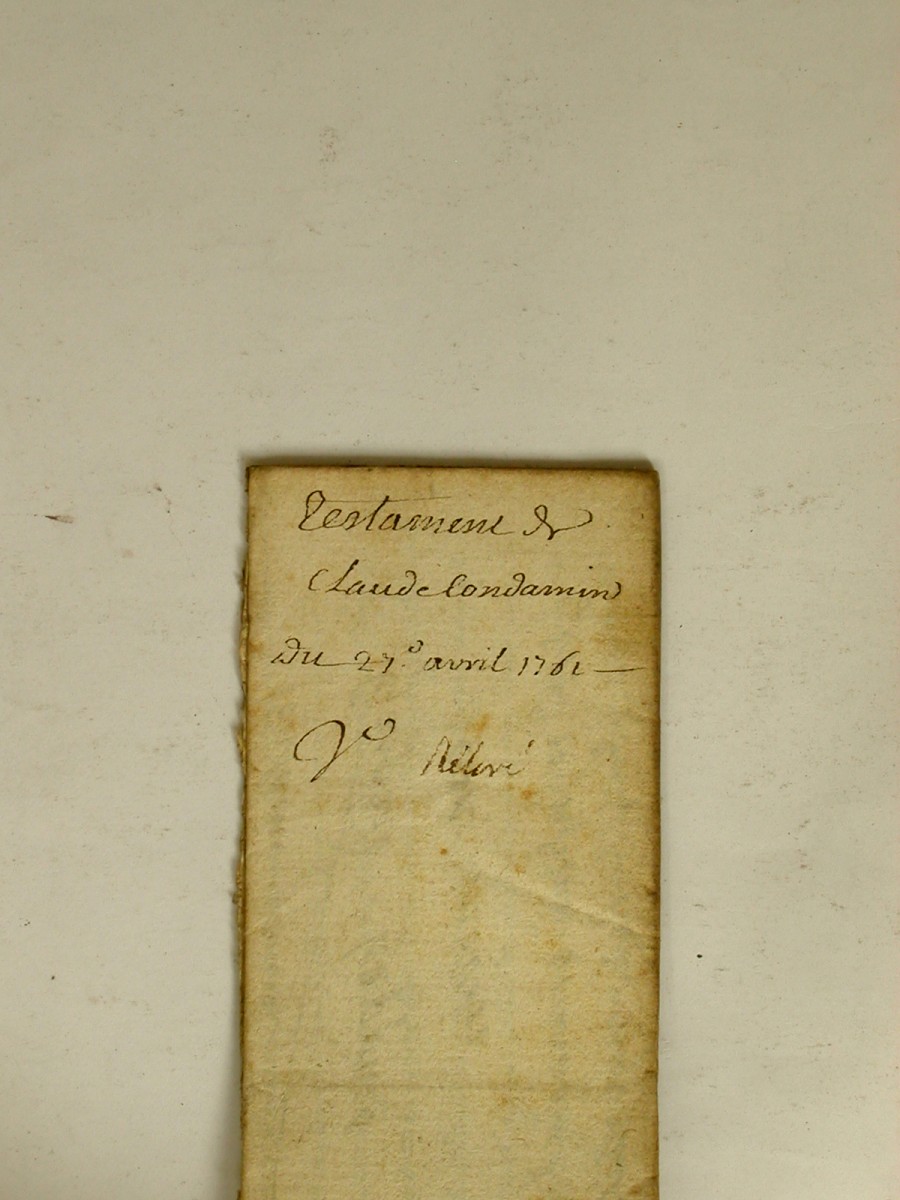 Testament de
Claude Condamin
Du 27e avril 1761 —
Relevé